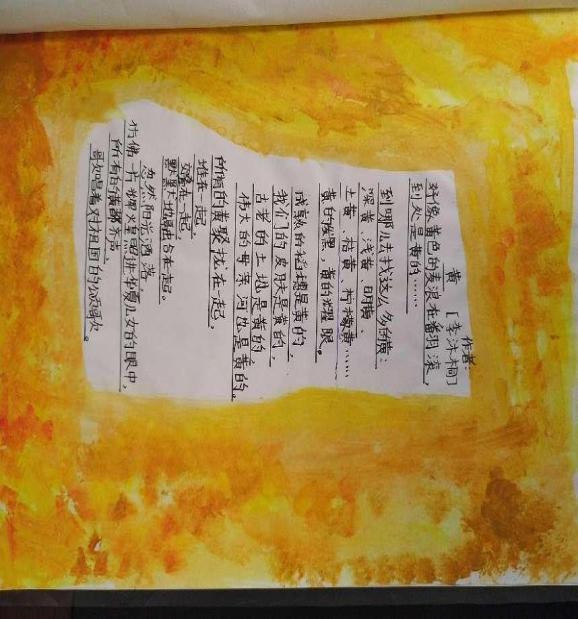 黄
作者:
[李沐桐]
好像黄色的麦浪在翻滚,
到处是黄的……
到哪儿去找这么多的黄:
深黄、浅黄、明黄、
土黄、桔黄、柠檬黄……
黄的发黑,黄的耀眼。
成熟的稻穗是黄的,
我们的皮肤是黄的,
古老的土地是黄的
伟大的母亲河也是黄的。
所有的黄聚拢在一起,
堆在一起,
交错在一起,
默默地融合在一起。
忽然阳光洒落,
仿佛一片烟火照进华夏儿女的眼中,
所有的黄都齐声,
歌唱着对祖国的颂歌。